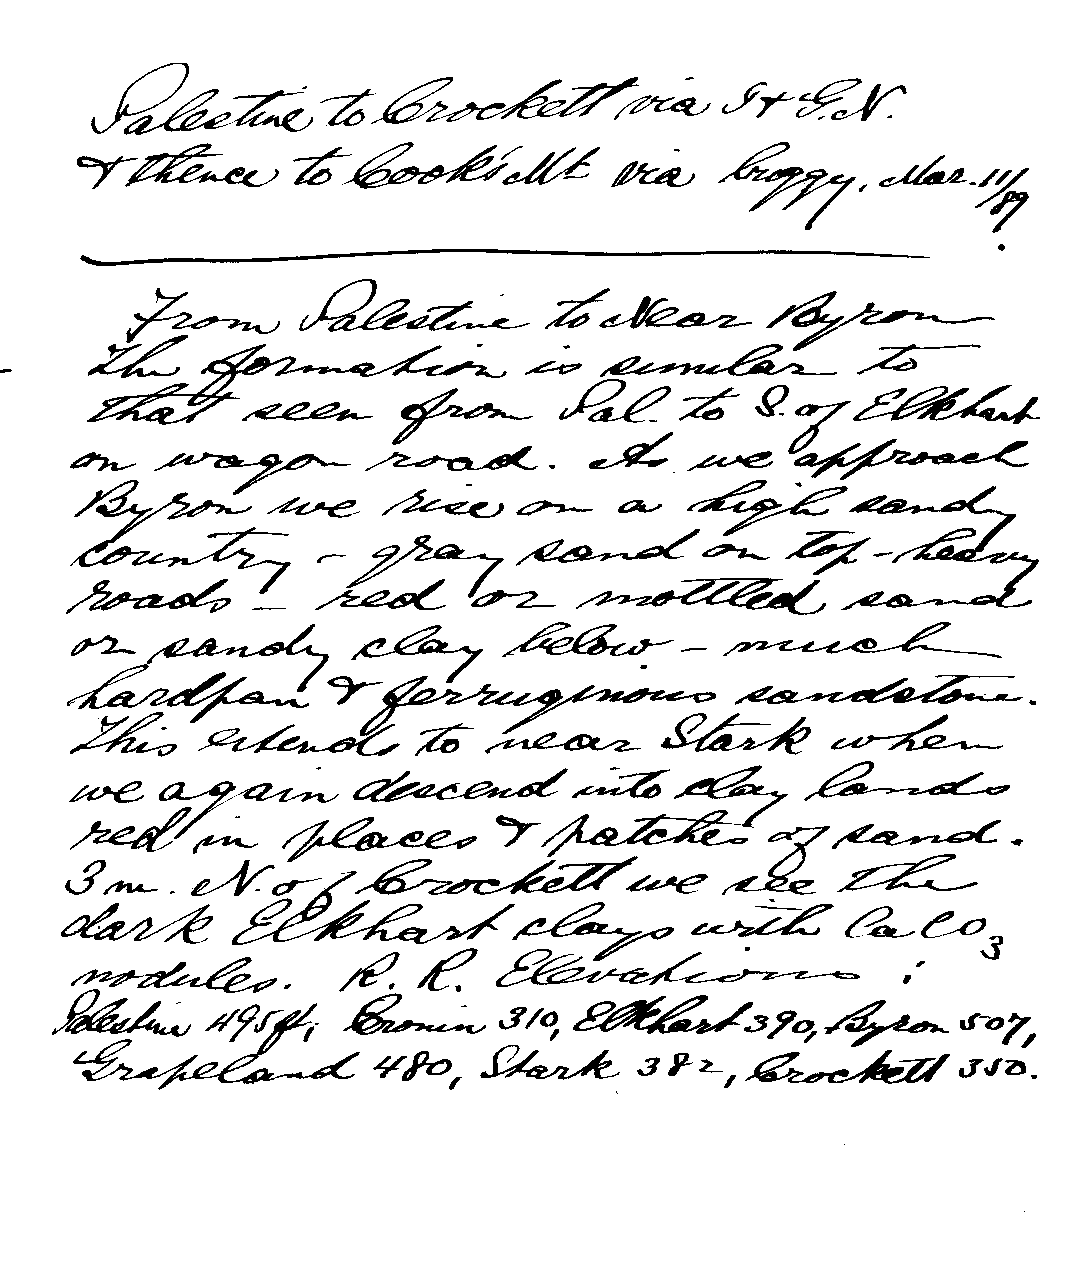 Palestine to Crockett via I & G.N.
& thence to Cook's Mt. via buggy, Mar. 11/89.
From Palestine to Near Byron
the formation is similar to
that seen from Pal. to S. of Elkhart
on wagon road. As we approach
Byron we rise on a high sandy
country - gray sand on top - heavy
roads - red or mottled sand
or sandy clay below - much
hardpan & ferruginous sandstone.
This extends to near Stark when
we again descend into clay lands
red in places & patches of sand.
3 m. N. of Crockett we see the
dark Elkhart clays with CaCO3
nodules. R. R. Elevations :
Palestine 495 ft; Cronin 310, Elkhart 390, Byron 507,
Grapeland 480, Stark 382, Crockett 350.